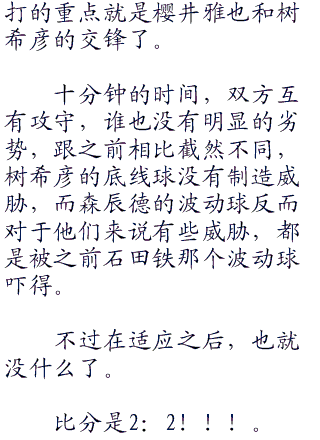 打的重点就是樱井雅也和树
希彦的交锋了。
十分钟的时间，双方互
有攻守，谁也没有明显的劣
势，跟之前相比截然不同，
树希彦的底线球没有制造威
胁，而森辰德的波动球反而
对于他们来说有些威胁，都
是被之前石田铁那个波动球
吓得。
不过在适应之后，也就
没什么了。
比分是2：2！！！。